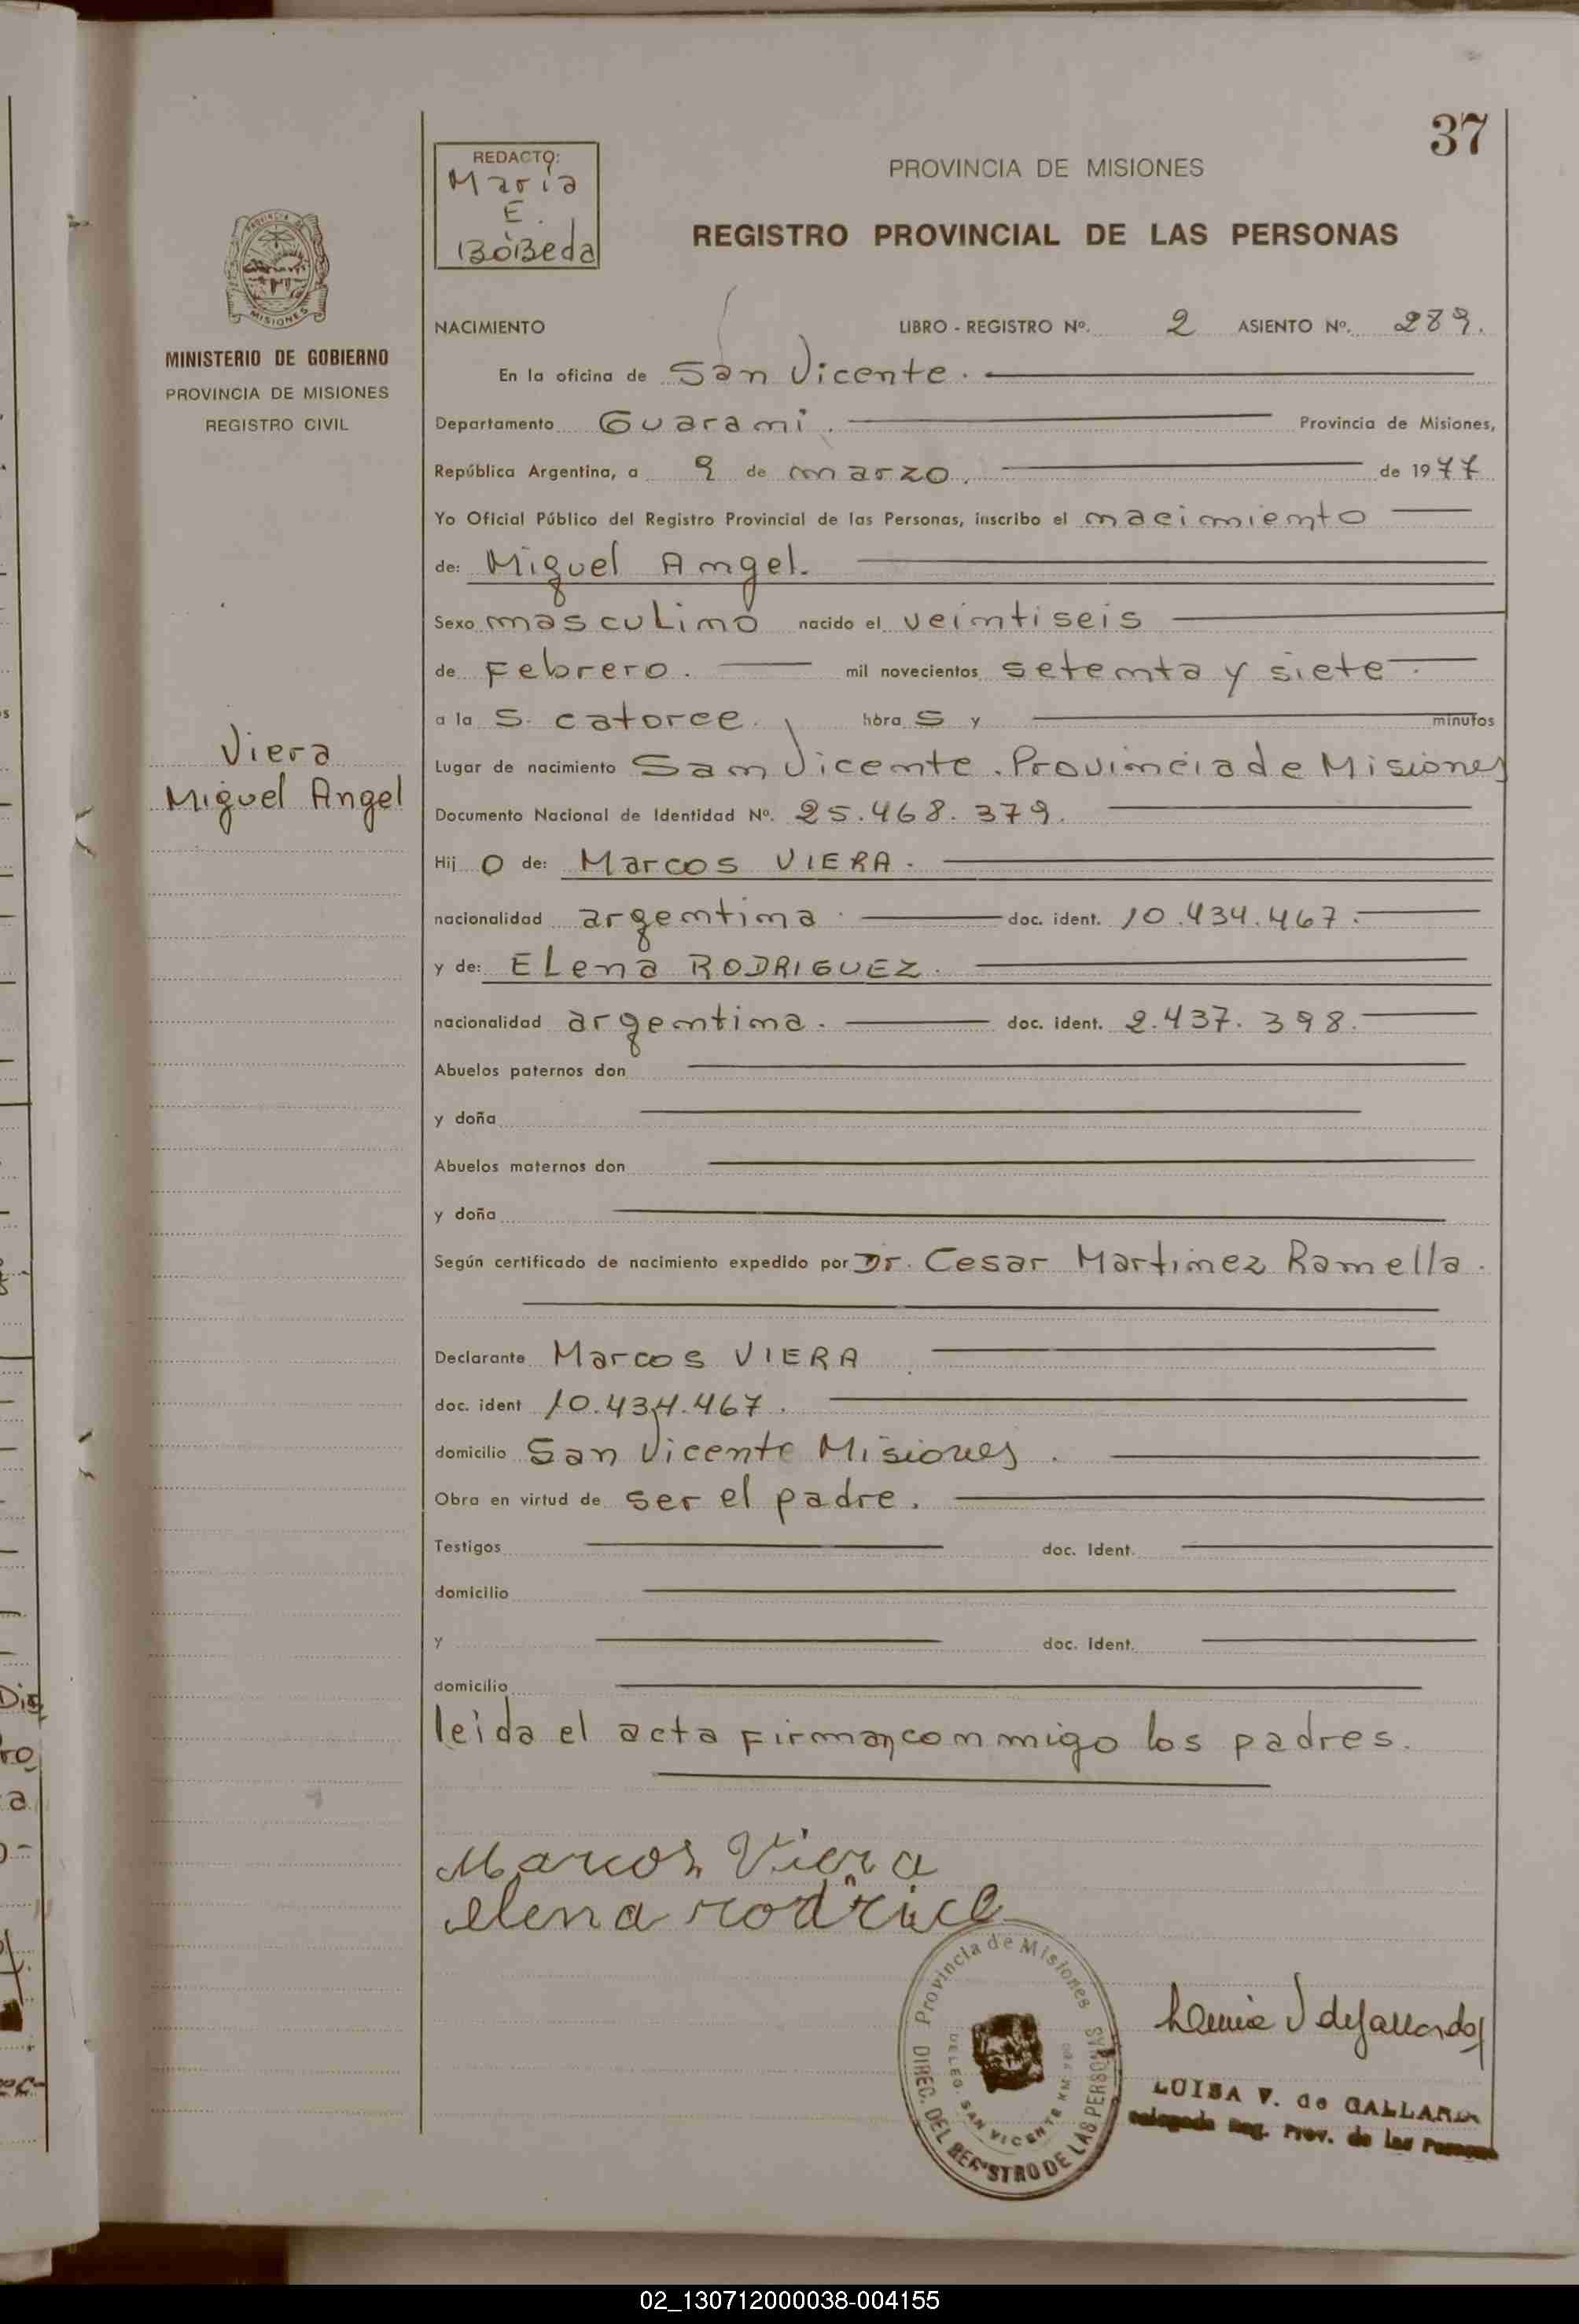 37
REDACTO:
Maria
E.
BóBeda
PROVINCIA DE MISIONES
REGISTRO PROVINCIAL DE LAS PERSONAS
MINISTERIO DE GOBIERNO
PROVINCIA DE MISIONES
REGISTRO CIVIL
NACIMIENTO LIBRO - REGISTRO Nº. 2 ASIENTO Nº. 289.
En la oficina de San Vicente.
Departamento Guarami. Provincia de Misiones,
República Argentina, a 9 de marzo. de 1977
Yo Oficial Público del Registro Provincial de las Personas, inscribo el nacimiento
de: Miguel Angel.
Sexo masculino nacido el veintiseis
de Febrero. mil novecientos setenta y siete.
a la s. catorce. hora s y minutos
Viera
Miguel Angel
Lugar de nacimiento San Vicente. Provincia de Misiones
Documento Nacional de Identidad Nº. 25.468.379.
Hij o de: Marcos VIERA.
nacionalidad argentina. doc. ident. 10.434.467.
y de: ELena RODRIGUEZ.
nacionalidad argentina. doc. ident. 2.437.398.
Abuelos paternos don
y doña
Abuelos maternos don
y doña
Según certificado de nacimiento expedido por Dr. Cesar Martinez Ramella.
Declarante Marcos VIERA
doc. ident 10.434.467.
domicilio San Vicente Misiones.
Obra en virtud de ser el padre.
Testigos doc. Ident.
domicilio
y doc. Ident.
domicilio
leida el acta Firman conmigo los padres.
Marcos Viera
elena
Provincia de Misiones
DIREC. DEL REGISTRO DE LAS PERSONAS
DELEG. SAN VICENTE
LUISA V. de GALLARDO
Delegada Reg. Prov. de las Personas
02_130712000038-004155